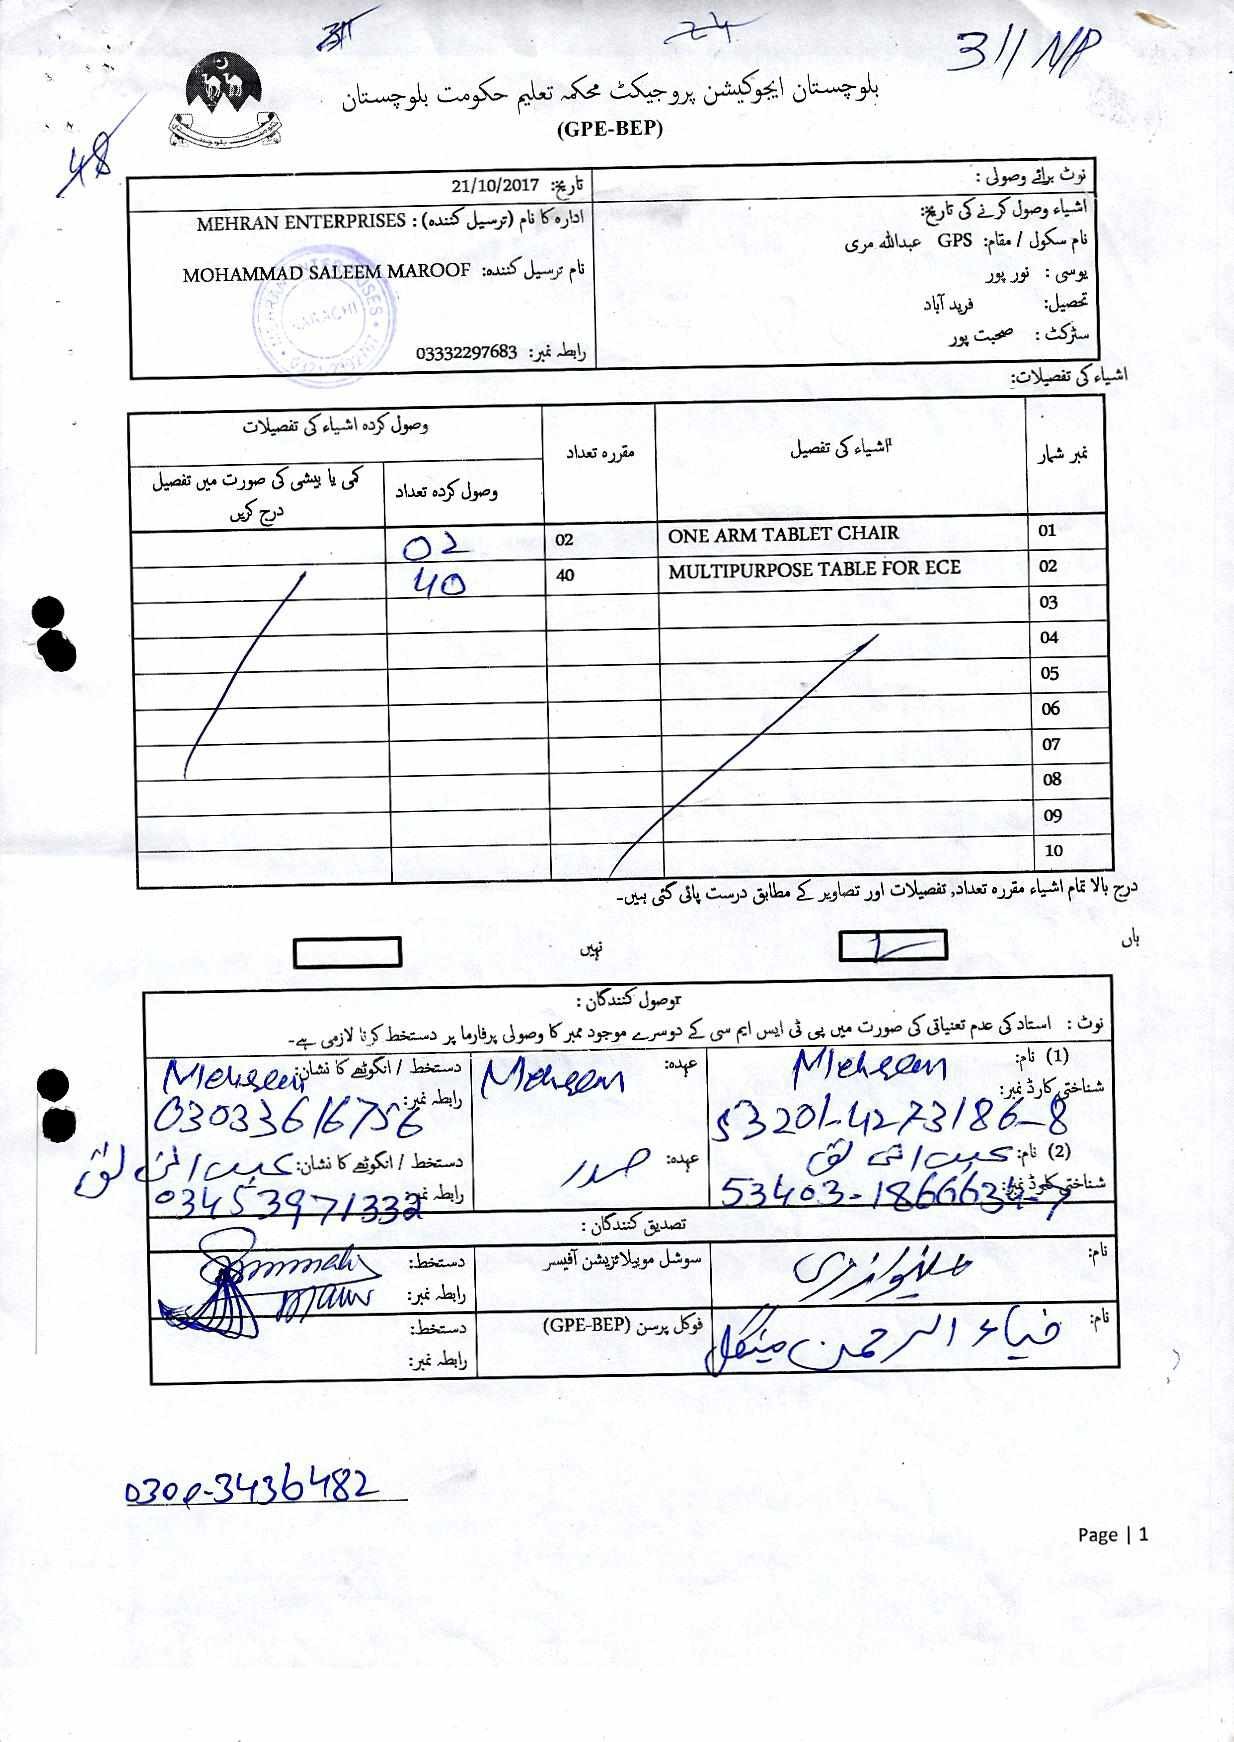 311 NP
48
بلوچستان ایجوکیشن پروجیکٹ محکمہ تعلیم حکومت بلوچستان
(GPE-BEP)
نوٹ برائے وصولی :
اشیاء وصول کرنے کی تاریخ:
نام سکول / مقام: GPS عبداللہ مری
یوسی : نور پور
تحصیل: فرید آباد
سٹرکٹ : صحبت پور
تاریخ: 21/10/2017
ادارہ کا نام (ترسیل کنندہ) : MEHRAN ENTERPRISES
نام ترسیل کنندہ: MOHAMMAD SALEEM MAROOF
رابطہ نمبر: 03332297683
KARACHI
اشیاء کی تفصیلات:
نمبر شمار اشیاء کی تفصیل مقررہ تعداد وصول کردہ اشیاء کی تفصیلات
وصول کردہ تعداد کمی یا بیشی کی صورت میں تفصیل درج کریں
01 ONE ARM TABLET CHAIR 02 02
02 MULTIPURPOSE TABLE FOR ECE 40 40
03
04
05
06
07
08
09
10
درج بالا تمام اشیاء مقررہ تعداد, تفصیلات اور تصاویر کے مطابق درست پائی گئی ہیں۔
ہاں نہیں
وصول کنندگان :
نوٹ : استاد کی عدم تعنیاتی کی صورت میں پی ٹی ایس ایم سی کے دوسرے موجود ممبر کا وصولی پرفارما پر دستخط کرنا لازمی ہے۔
(1) نام: Mohseen عہدہ: Mohseen دستخط / انگوٹھے کا نشان: Mohseen
شناختی کارڈ نمبر: 53201-4273186-8 رابطہ نمبر: 03033616756
(2) نام: عہدہ: صدر دستخط / انگوٹھے کا نشان:
شناختی کارڈ نمبر: 53403-1866634-7 رابطہ نمبر: 03453971332
تصدیق کنندگان :
نام: سوشل موبیلائزیشن آفیسر دستخط:
رابطہ نمبر:
نام: ضیاء الرحمن مینگل فوکل پرسن (GPE-BEP) دستخط:
رابطہ نمبر:
0300-3436482
Page | 1